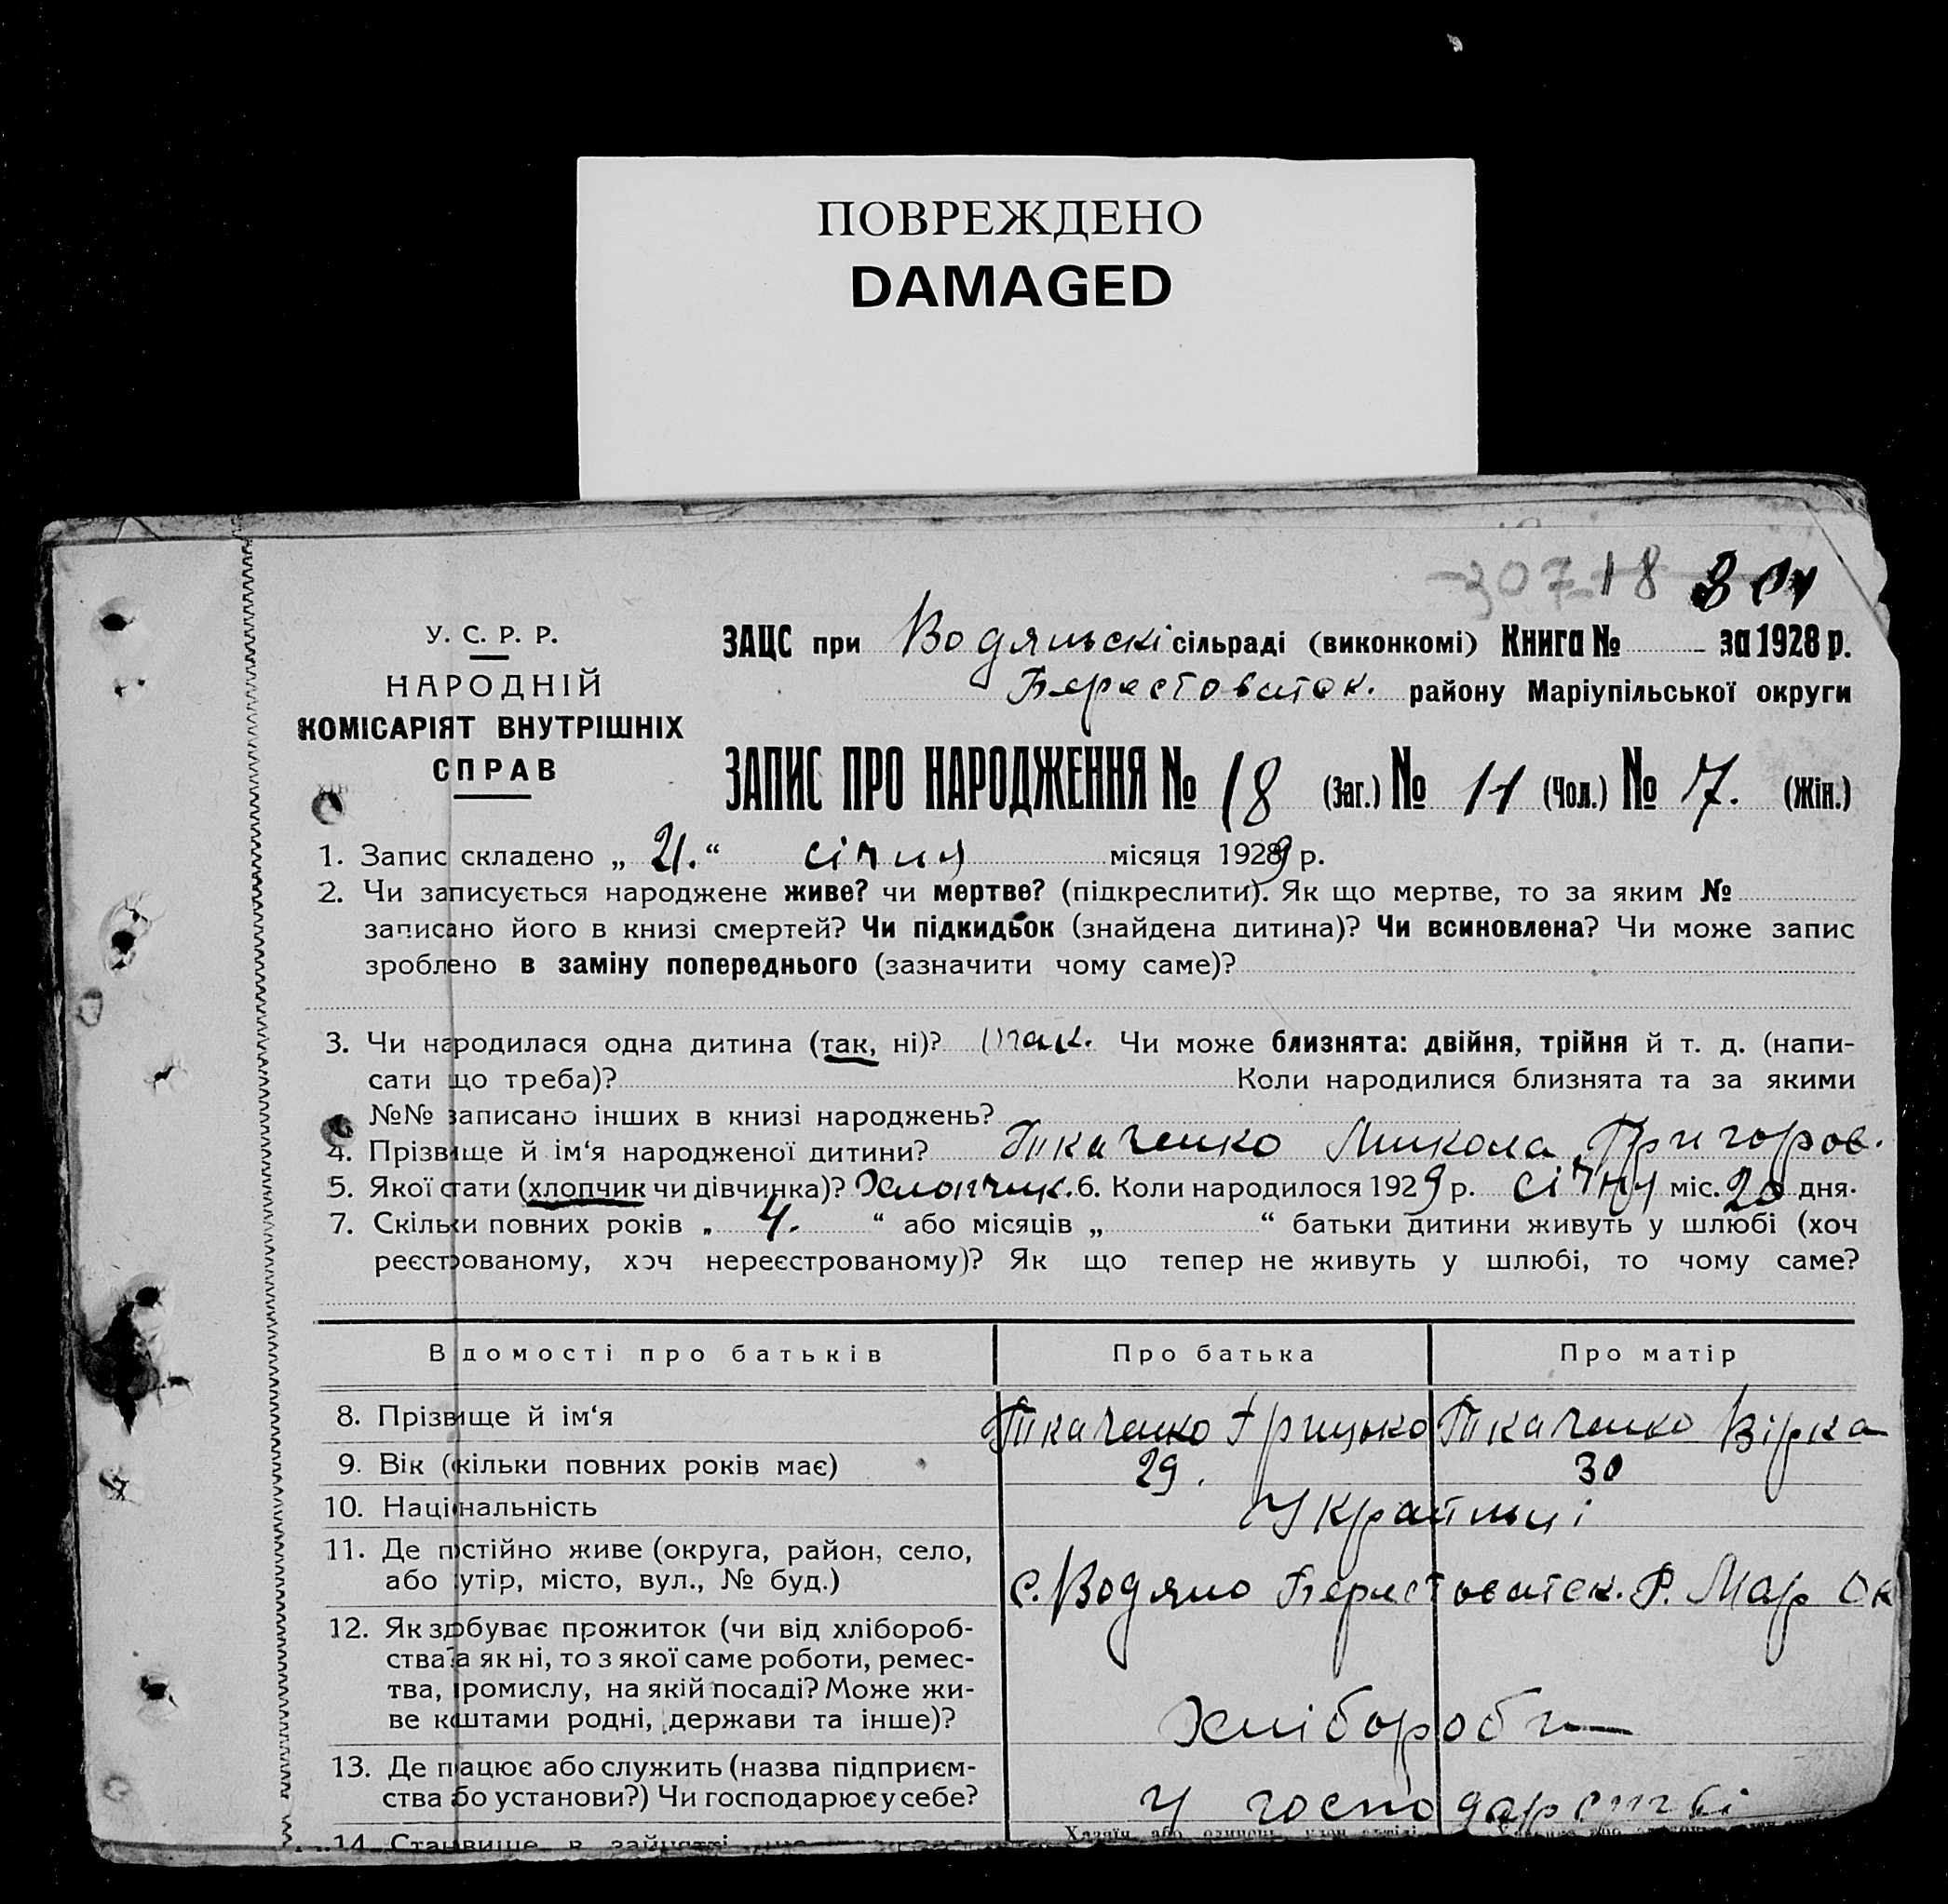 ПОВРЕЖДЕНО
DAMAGED
307 18
У. С. Р. Р.
НАРОДНІЙ
КОМІСАРІЯТ ВНУТРІШНІХ
СПРАВ
ЗАЦС при Водяньскі сільраді (виконкомі) Книга № за 1928 р.
Берестоватск. району Маріупільської округи
ЗАПИС ПРО НАРОДЖЕННЯ № 18 (Заг.) № 11 (Чол.) № 7. (Жін.)
1. Запис складено „ 21. “ січня місяця 1929 р.
2. Чи записується народжене живе? чи мертве? (підкреслити). Як що мертве, то за яким №
записано його в книзі смертей? Чи підкидьок (знайдена дитина)? Чи всиновлена? Чи може запис
зроблено в заміну попереднього (зазначити чому саме)?
3. Чи народилася одна дитина (так, ні)? так. Чи може близнята: двійня, трійня й т. д. (напи-
сати що треба)? Коли народилися близнята та за якими
№№ записано інших в книзі народжень?
4. Прізвище й ім‘я народженої дитини? Ткаченко Микола Григоров.
5. Якої стати (хлопчик чи дівчинка)? Хлопчик. 6. Коли народилося 1929 р. січня міс. 20 дня.
7. Скільки повних років „ 4. “ або місяців „ “ батьки дитини живуть у шлюбі (хоч
реєстрованому, хоч нереєстрованому)? Як що тепер не живуть у шлюбі, то чому саме?
Відомості про батьків Про батька Про матір
8. Прізвище й ім‘я Ткаченко Грицько Ткаченко Вірка
9. Вік (скільки повних років має) 29. 30
10. Національність Українці
11. Де постійно живе (округа, район, село,
або хутір, місто, вул., № буд.) с. Водяно Берестоватск. Р. Мар Ок
12. Як здобуває прожиток (чи від хлібороб-
ства? а як ні, то з якої саме роботи, ремес-
тва, промислу, на якій посаді? Може жи-
ве коштами родні, держави та інше)? Хлібороби
13. Де працює або служить (назва підприєм-
ства або установи?) Чи господарює у себе? У господарстві
14. Становище в занятті